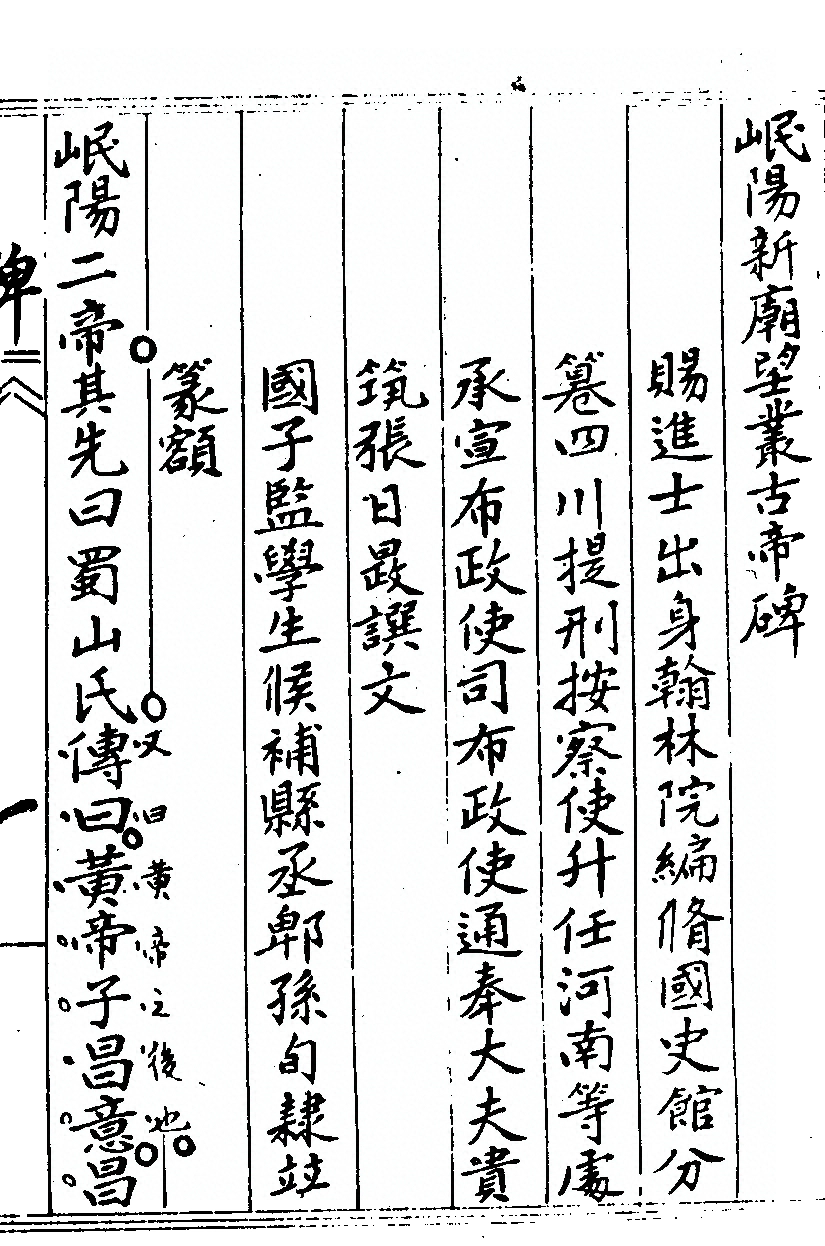 岷陽新廟望叢古帝碑
賜進士出身翰林院編脩國史館分
篹四川提刑按察使升任河南等處
承宣布政使司布政使通奉大夫貴
筑張日晸譔文
國子監學生候補縣丞郫孫旬隸竝
篆額
岷陽二帝其先曰蜀山氏傳曰黃帝子昌意昌
又曰黃帝之後也
碑
一